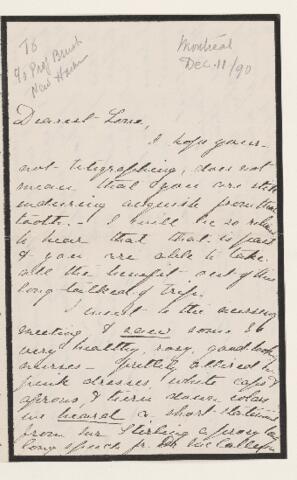 To
c/o Prof Brush
New Haven
Montreal
Dec. 11/90
Dearest Lorne,
I hope your
not telegraphing, does not
mean that you are still
enduring anguish from that
tooth. - I will be so
to hear that that is past
& you are able to take
all the benefit out of this
long talked of trip.
I went to the nursing
meeting & saw some 36
very healthy, rosy, good looking
nurses - prettily attired in
pink dresses, white caps &
aprons, & turn down collars
we heard a short statement
from Mr Stirling a prosy long
long speech fr. Dr McCallum